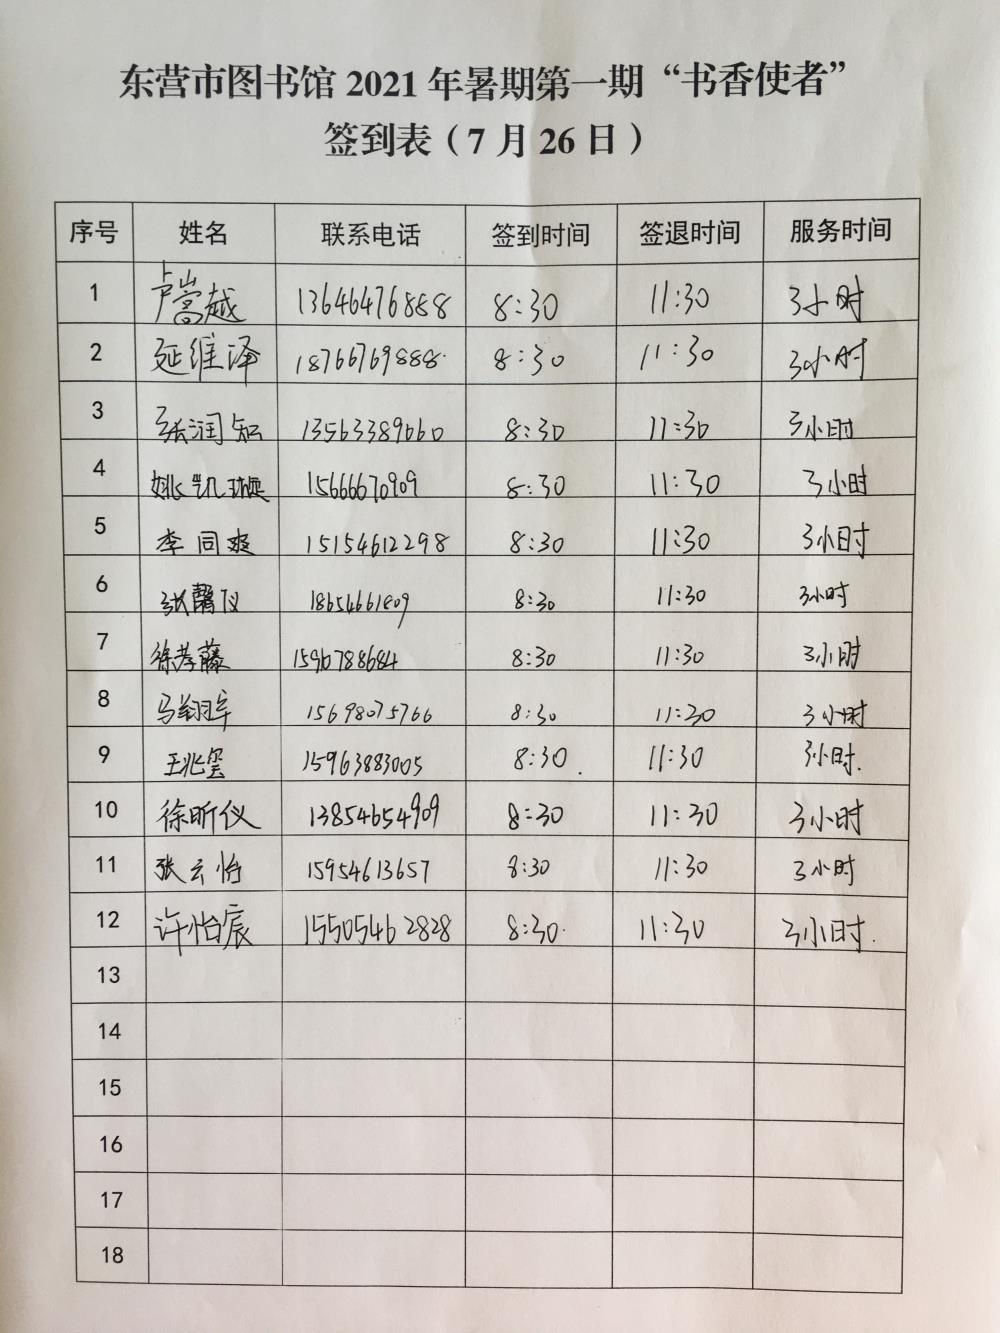 东营市图书馆 2021 年暑期第一期“书香使者”
签到表（7 月 26 日）
序号 姓名 联系电话 签到时间 签退时间 服务时间
1 卢嵩越 13646476888 8:30 11:30 3小时
2 延维泽 18766769888 8:30 11:30 3小时
3 张润知 13563389060 8:30 11:30 3小时
4 姚凯琪 15666670909 8:30 11:30 3小时
5 李同爽 15154612298 8:30 11:30 3小时
6 张馨仪 18654661809 8:30 11:30 3小时
7 徐孝藤 8:30 11:30 3小时
8 马翔宇 15698075766 8:30 11:30 3小时
9 王兆玺 15963883005 8:30 11:30 3小时.
10 徐昕仪 13854654909 8:30 11:30 3小时
11 张云怡 15954613657 8:30 11:30 3小时
12 许怡宸 15505462828 8:30 11:30 3小时.
13
14
15
16
17
18